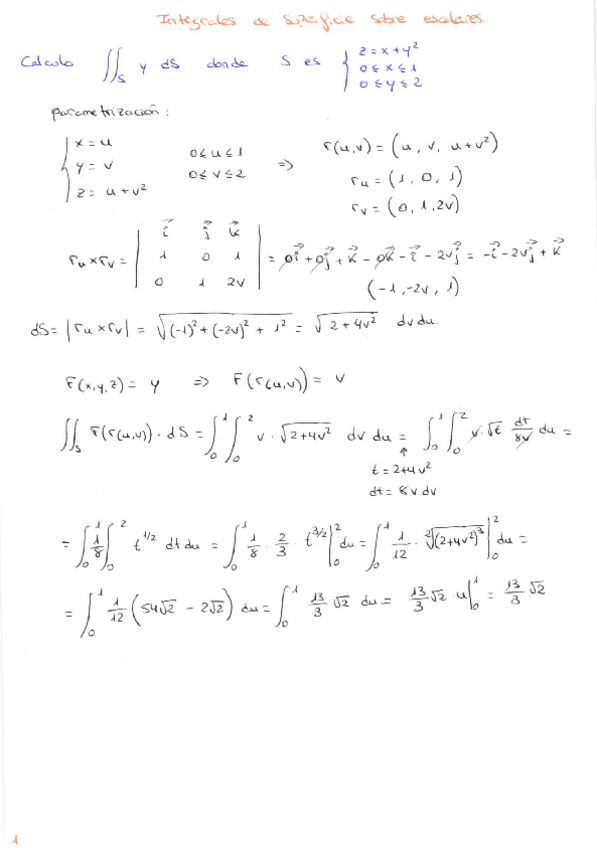 Integrales de superficie sobre escalares
Calculo ∬_S y dS donde S es { z = x + y²
0 ≤ x ≤ 1
0 ≤ y ≤ 2
parametrización:
{ x = u
y = v
z = u + v²
0 ≤ u ≤ 1
0 ≤ v ≤ 2
=> r(u,v) = (u, v, u + v²)
r_u = (1, 0, 1)
r_v = (0, 1, 2v)
r_u × r_v = | i⃗ j⃗ k⃗ |
| 1 0 1 |
| 0 1 2v |
= 0i⃗ + 0j⃗ + k⃗ - 0k⃗ - i⃗ - 2vj⃗ = -i⃗ - 2vj⃗ + k⃗
(-1, -2v, 1)
dS = |r_u × r_v| = √((-1)² + (-2v)² + 1²) = √(2 + 4v²) dv du.
F(x,y,z) = y => F(r(u,v)) = v
∬_S F(r(u,v)) · dS = ∫₀¹ ∫₀² v · √(2+4v²) dv du = ∫₀¹ ∫₀² v · √t dt/8v du =
↑
t = 2+4v²
dt = 8v dv
= ∫₀¹ 1/8 ∫₀² t^(1/2) dt du = ∫₀¹ 1/8 · 2/3 · t^(3/2) |₀² du = ∫₀¹ 1/12 · ²√((2+4v²)³) |₀² du =
= ∫₀¹ 1/12 (54√2 - 2√2) du = ∫₀¹ 13/3 √2 du = 13/3 √2 · u |₀¹ = 13/3 √2
1